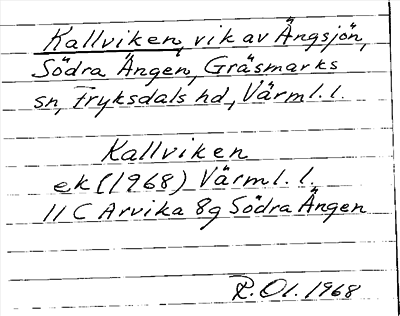 Kallviken, vik av Ängsjön,
Södra Ängen, Gräsmarks
sn, Fryksdals hd, Värml. l.
Kallviken
ek (1968) Värml. l.
11 C Arvika 8g Södra Ängen
R. Ol. 1968